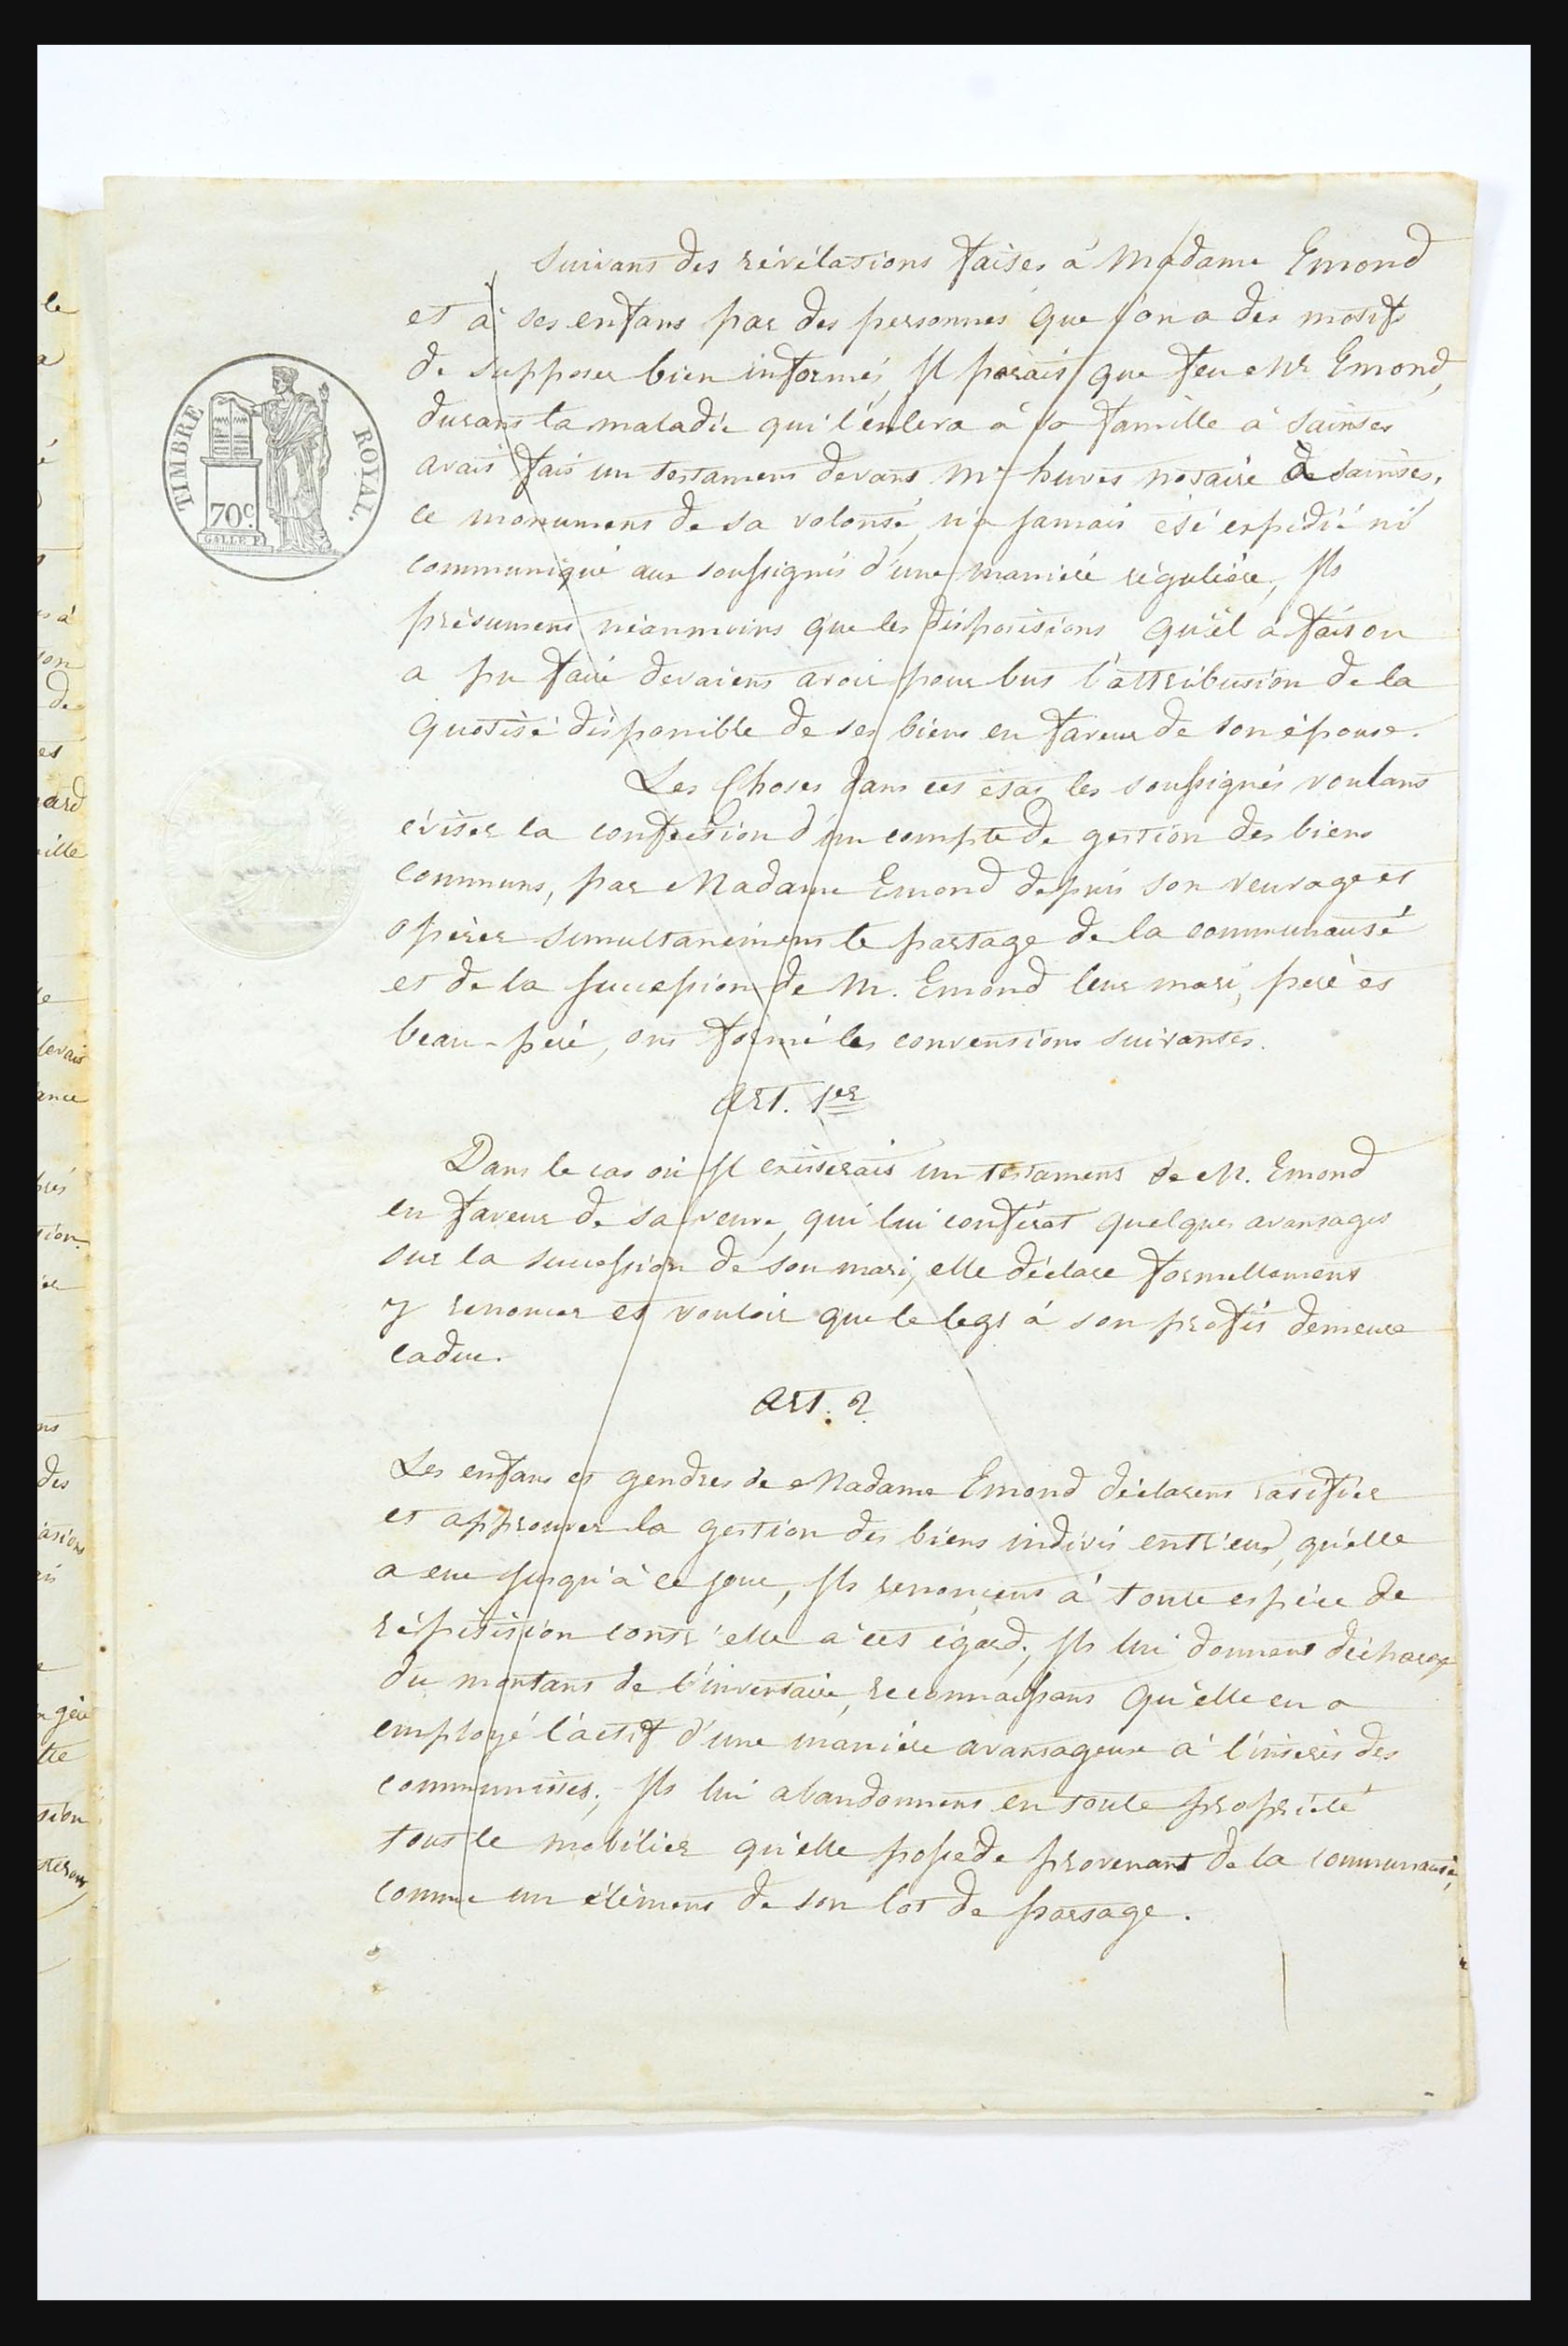 Suivant des révélations faites à Madame Emond
et à ses enfans par des personnes que l'on a des motifs
de supposer bien informés, Il parait que feu Mr Emond,
durant la maladie qui l'enleva à sa famille à Saintes
avait fait un testament devant Me huvet notaire à Saintes,
ce monument de sa volonté, n'a jamais été expédié ni
communiqué aux soussignés d'une manière régulière, Ils
présument néanmoins que les dispositions qu'il a fait ou
a pu faire devaient avoir pour but l'attribution de la
quotité disponible de ses biens en faveur de son épouse.
Les Choses dans cet état les soussignés voulant
éviter la confection d'un compte de gestion des biens
communs, par Madame Emond depuis son veuvage et
opérer simultanément le partage de la communauté
et de la succession de M. Emond leur mari, père et
beau-père, ont formé les conventions suivantes.
Art. 1er
Dans le cas où Il existerait un testament de M. Emond
en faveur de sa veuve, qui lui conférat quelques avantages
sur la succession de son mari, elle déclare formellement
y renoncer et vouloir que le legs à son profit demeure
caduc.
Art. 2
Les enfans et gendres de Madame Emond déclarent ratifier
et approuver la gestion des biens indivis entr'eux, qu'elle
a eue jusqu'à ce jour, Ils renoncent à toute espèce de
répétition contr'elle à cet égard; Ils lui donnent décharge
du montant de l'inventaire, reconnaissant qu'elle en a
employé l'actif d'une manière avantageuse à l'intérêt des
communistes; Ils lui abandonnent en toute propriété
tout le mobilier qu'elle possède provenant de la communauté,
comme un élément de son lot de partage.
TIMBRE ROYAL.
70c.
GALLE F.